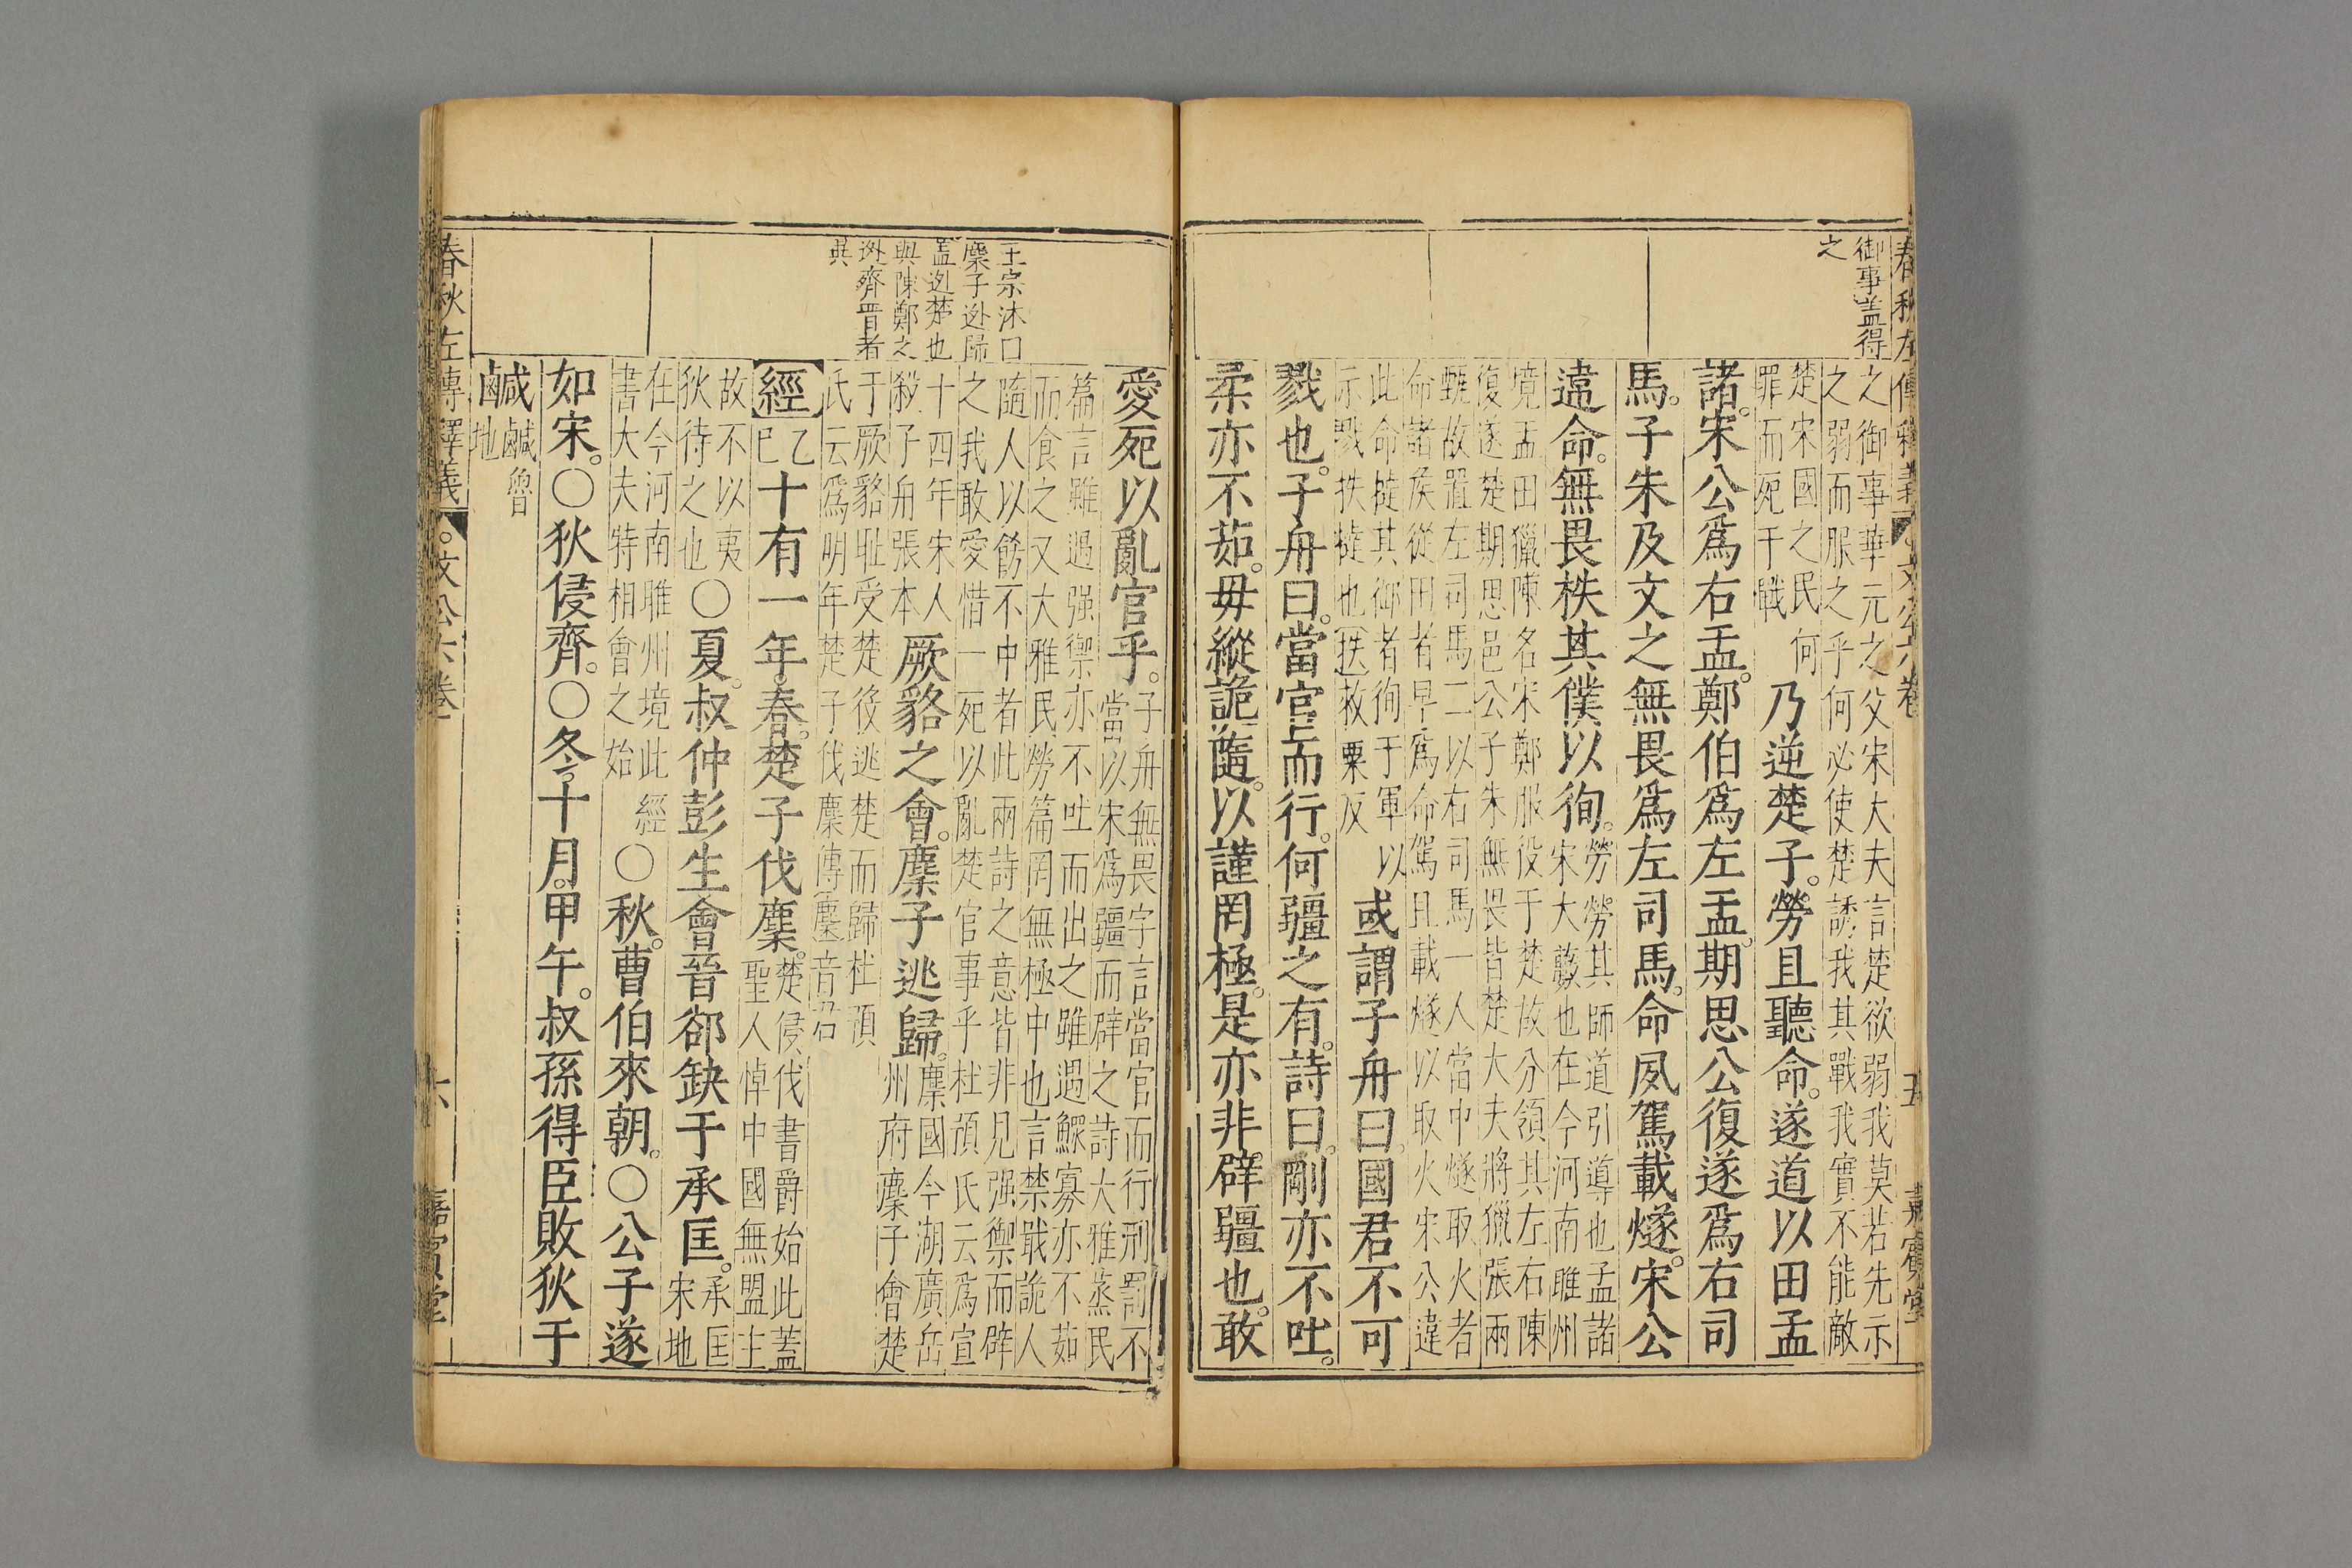 御事盖得
之
之御事華元之父宋大夫言楚欲弱我莫若先示
之弱而服之乎何必使楚誘我其戰我實不能敵
楚宋國之民何
罪而死于戰
乃逆楚子。勞且聽命。遂道以田孟
諸。宋公爲右盂。鄭伯爲左盂。期思公復遂爲右司
馬。子朱及文之無畏爲左司馬。命夙駕載燧。宋公
違命。無畏抶其僕以徇。
勞勞其師道引導也孟諸
宋大藪也在今河南睢州
境盂田獵陳名宋鄭服役于楚故分領其左右陳
復遂楚期思邑公子朱無畏皆楚大夫將獵張兩
甄故置左司馬二以右司馬一人當中燧取火者
命諸侯從田者早爲命駕且載燧以取火宋公違
此命撻其御者徇于軍以
示戮抶撻也抶敕栗反
或謂子舟曰。國君不可
戮也。子舟曰。當官而行。何彊之有。詩曰。剛亦不吐。
柔亦不茹。毋縱詭隨。以謹罔極。是亦非辟彊也。敢
愛死以亂官乎。
子舟無畏字言當官而行刑罰不
當以宋爲彊而辟之詩大雅蒸民
篇言雖遇强禦亦不吐而出之雖遇鰥寡亦不茹
而食之又大雅民勞篇罔無極中也言禁戢詭人
隨人以飭不中者此兩詩之意皆非見强禦而辟
之我敢愛惜一死以亂楚官事乎杜預氏云爲宣
十四年宋人
殺子舟張本
厥貉之會。麇子逃歸。
麇國今湖廣岳
州府麇子會楚
于厥貉耻受楚役逃楚而歸杜預
氏云爲明年楚子伐麇傳麇音君
王宗沐口
麇子逃歸
盖逃楚也
與陳鄭之
逃齊晋者
異
經
乙
巳
十有一年。春。楚子伐麇。
楚侵伐書爵始此蓋
聖人悼中國無盟主
故不以夷
狄待之也
○夏。叔仲彭生會晉郤缺于承匡。
承匡
宋地
在今河南睢州境此經
書大夫特相會之始
○秋。曹伯來朝。○公子遂
如宋。○狄侵齊。○冬。十月。甲午。叔孫得臣敗狄于
鹹
鹹魯
地
春秋左傳釋義
文公六卷
六
嘉賓堂